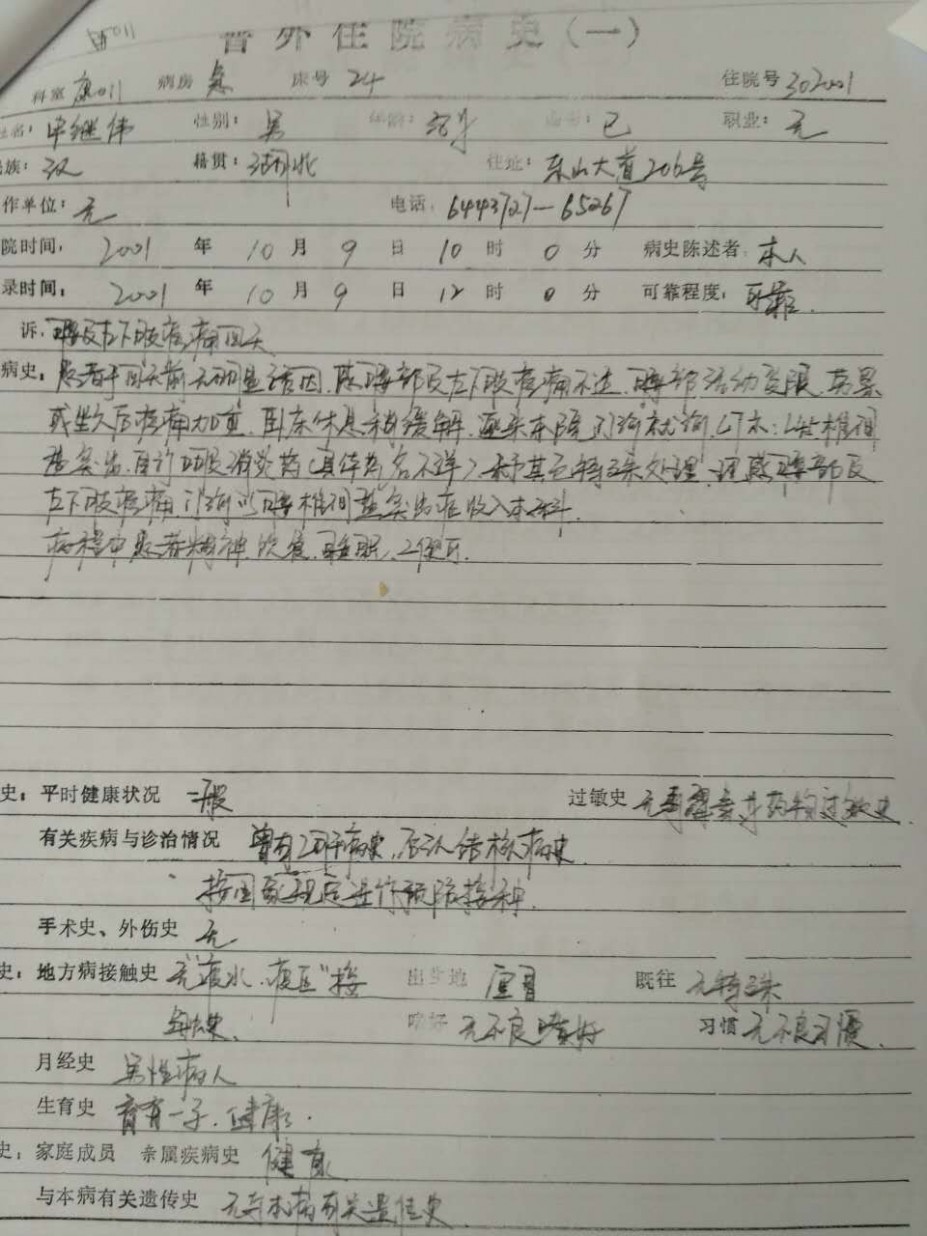 普外住院病史(一)
科室 康四 病房 床号 24 住院号 302001
姓名: 继伟 性别: 男 年龄: 岁 婚否: 已 职业: 无
民族: 汉 籍贯: 湖北 住址: 东山大道206号
作单位: 无 电话: 6443727-65267
院时间: 2001 年 10 月 9 日 10 时 0 分 病史陈述者: 本人
录时间: 2001 年 10 月 9 日 12 时 0 分 可靠程度: 可靠
诉: 腰及左下肢疼痛四天
病史: 患者于四天前无明显诱因,感腰部及左下肢疼痛不适,腰部活动受限,劳累
或坐久后疼痛加重,卧床休息稍缓解,遂来本院门诊就诊,CT示:椎间
盘突出,自行口服消炎药(具体药名不详),未予其它特殊处理,现感腰部及
左下肢疼痛,门诊以腰椎间盘突出症收入本科.
病程中患者精神、饮食、可,二便可.
史: 平时健康状况 一般 过敏史 无药物过敏史.
有关疾病与诊治情况 曾有病史,否认结核病史
按国家规定进行预防接种.
手术史、外伤史 无
史: 地方病接触史 无“疫水、疫区”接 出生地 宜昌 既往 无特殊
触史. 嗜好 无不良嗜好 习惯 无不良习惯.
月经史 男性病人
生育史 育有一子,健康.
史: 家庭成员 亲属疾病史 健康
与本病有关遗传史 无与本病有关遗传史